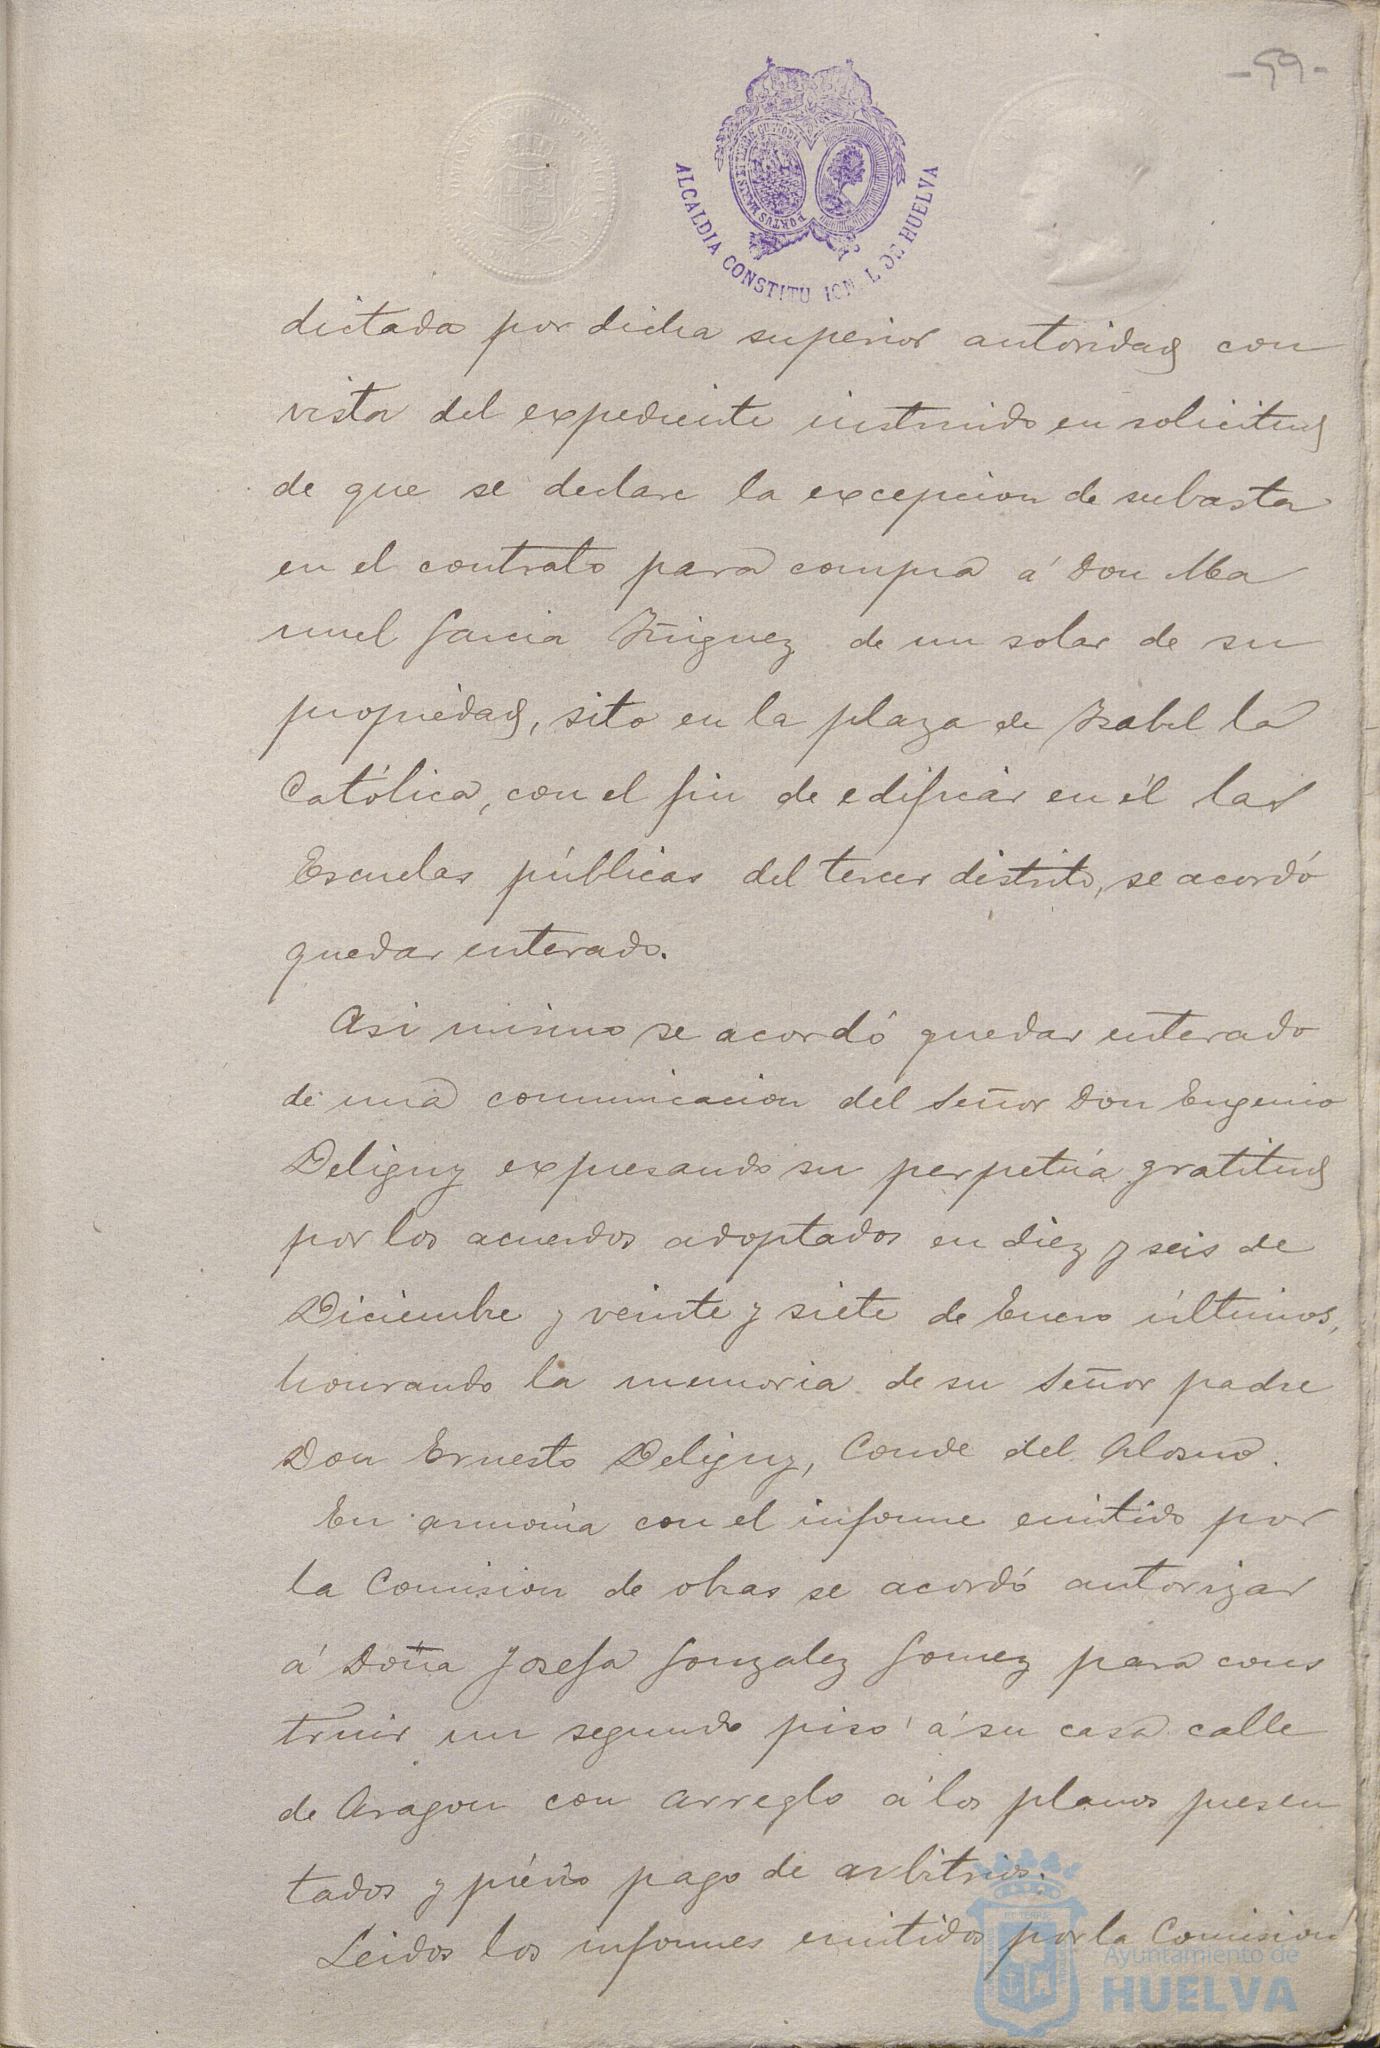 -59-
PORTUS MARIS ET TERRE CUSTODIA
ALCALDIA CONSTITU ION L DE HUELVA
dictada por dicha superior autoridad con
vista del expediente instruido en solicitud
de que se declare la excepcion de subasta
en el contrato para compra á Don Ma
nuel Garcia Iñiguez de un solar de su
propiedad, sito en la plaza de Isabel la
Católica, con el fin de edificar en él las
Escuelas públicas del tercer distrito, se acordó
quedar enterado.
Asi mismo se acordó quedar enterado
de una comunicacion del Señor Don Eugenio
Deligny expresando su perpetúa gratitud
por los acuerdos adoptados en diez y seis de
Diciembre y veinte y siete de Enero últimos,
honrando la memoria de su Señor padre
Don Ernesto Deligny, Conde del Alosno.
En armonía con el informe emitido por
la Comision de obras se acordó autorizar
á Doña Josefa Gonzalez Gomez para cons
truir un segundo piso á su casa calle
de Aragon con arreglo á los planos presen
tados y prévio pago de arbitrios.
Leidos los informes emitidos por la Comision
Ayuntamiento de
HUELVA